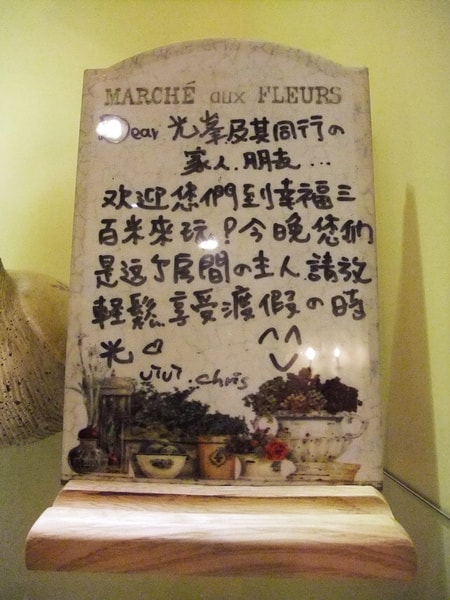 MARCHÉ aux FLEURS
Dear 光峯及其同行の
家人.朋友...
欢迎您們到幸福三
百米來玩!今晚您們
是这个房間の主人請放
輕鬆享受渡假の時
光♡ ^^
.chris